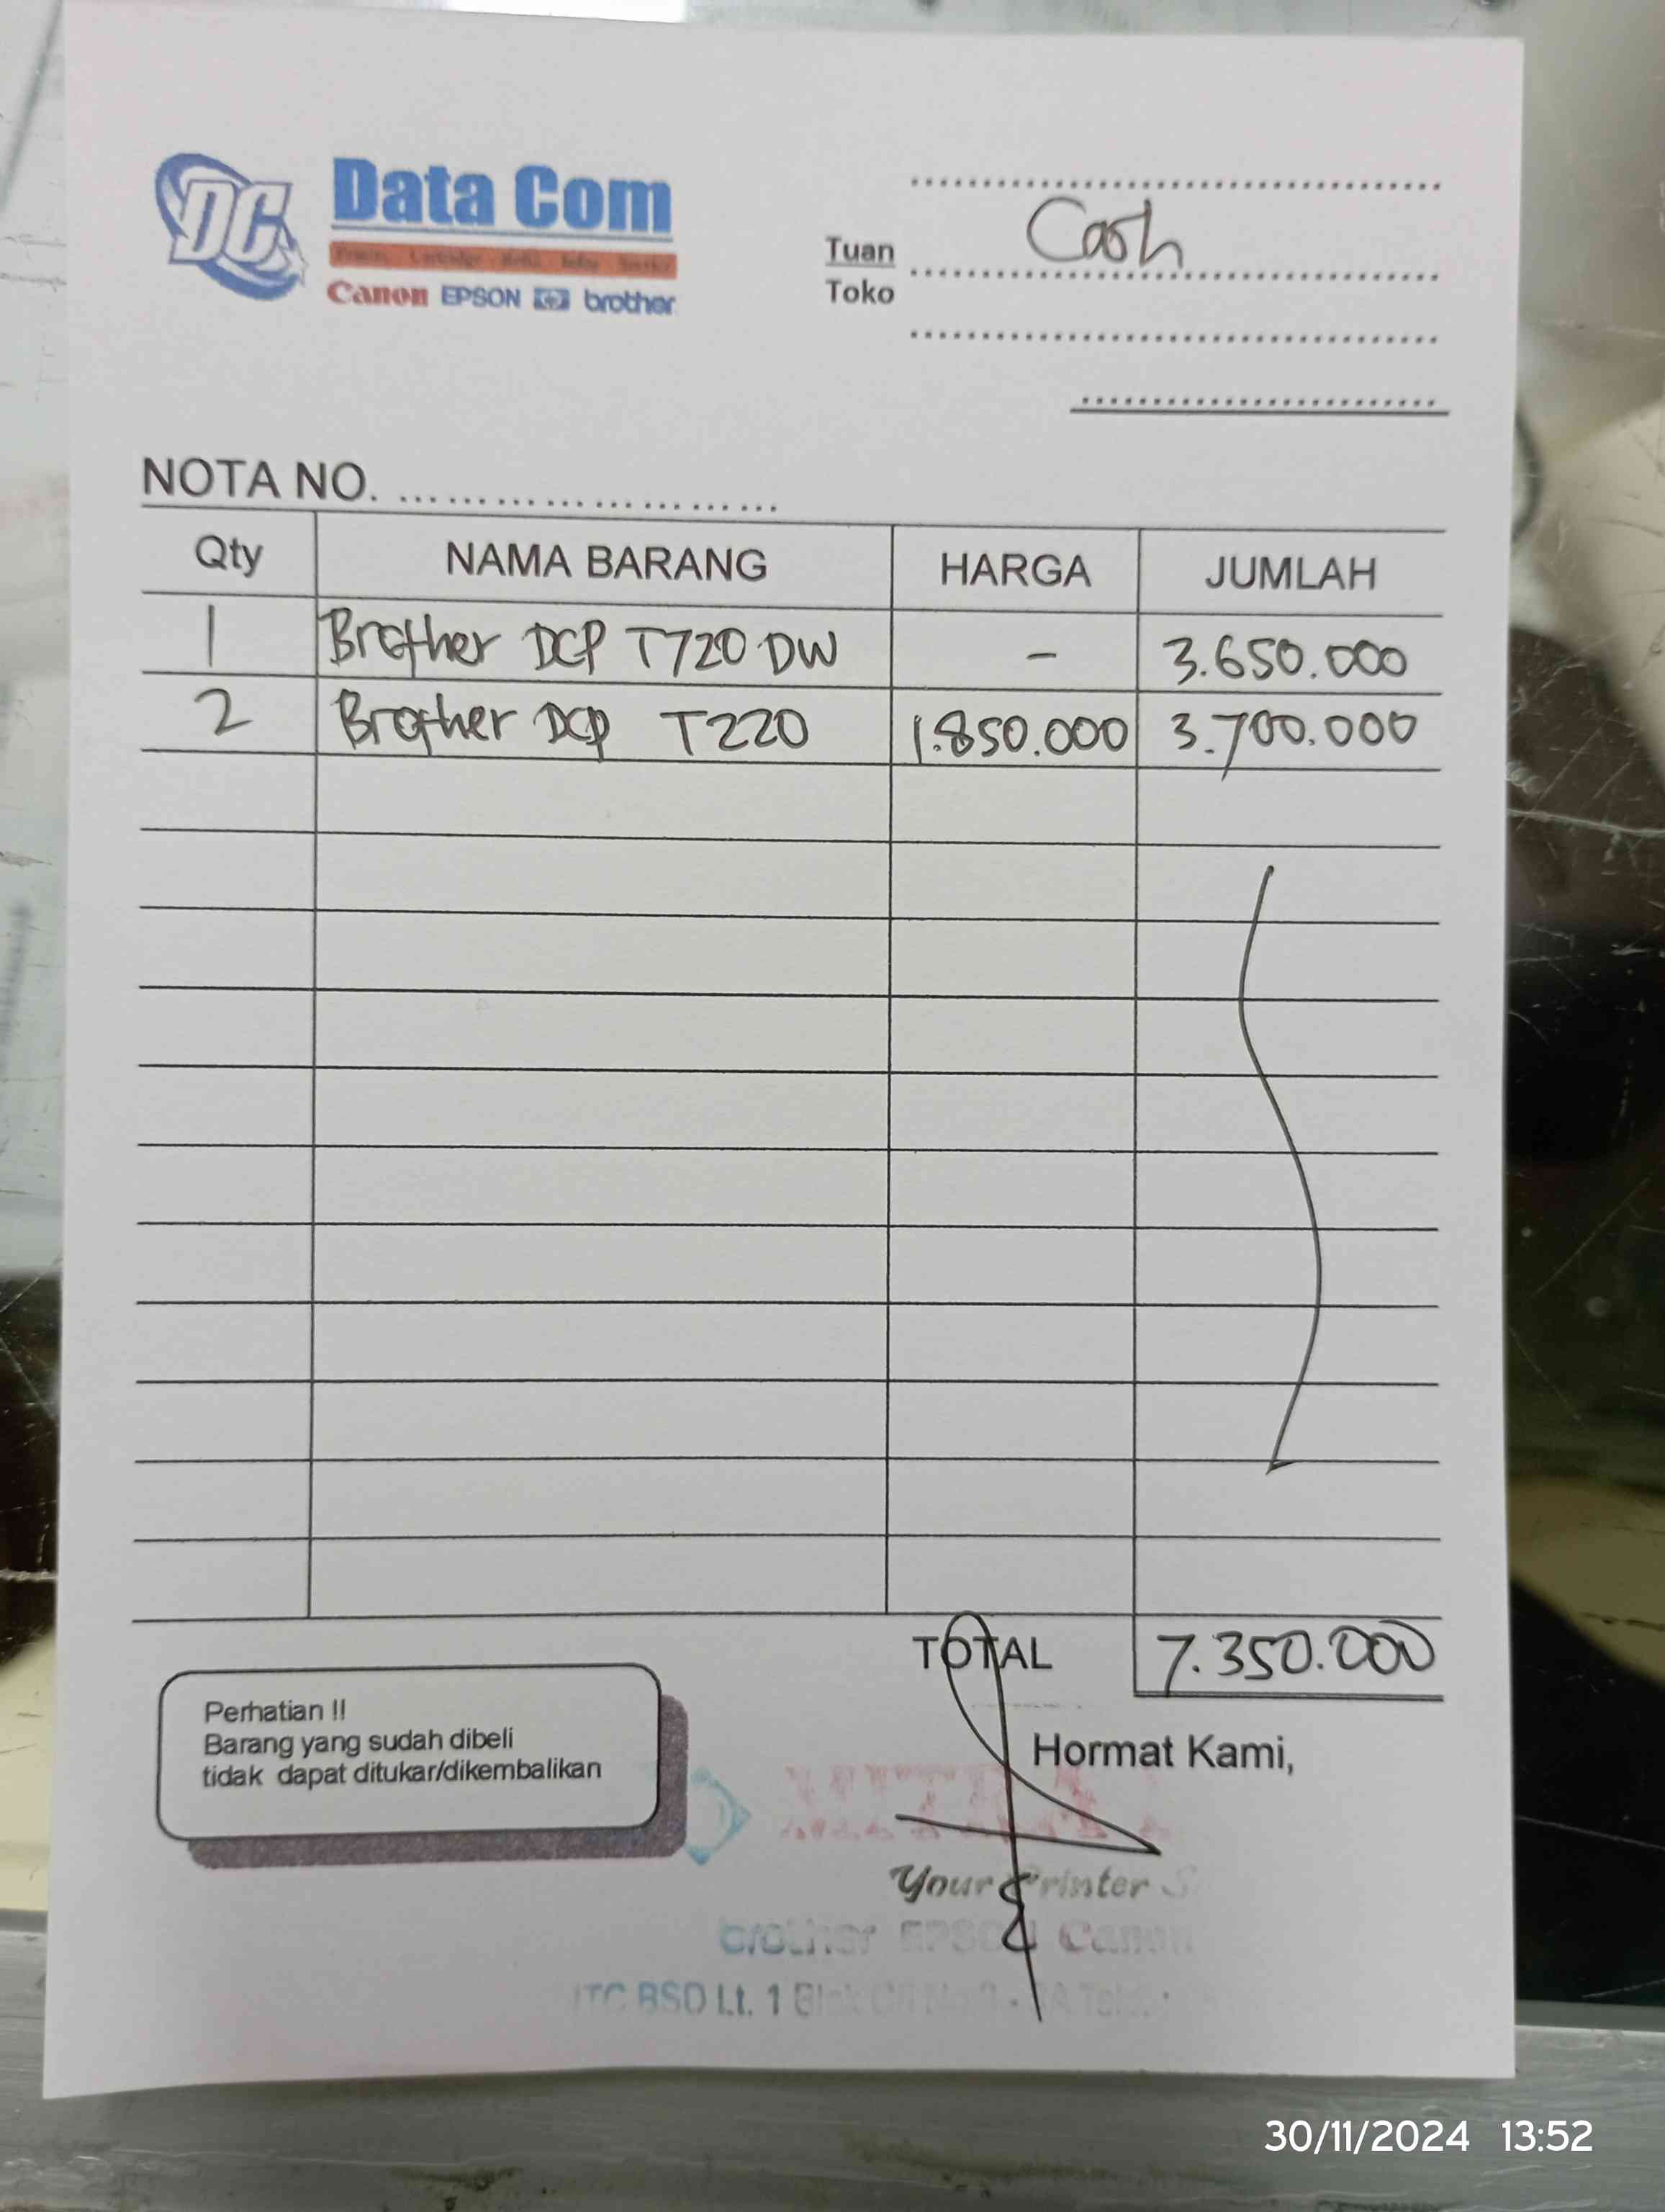 DC Data Com
Canon EPSON hp brother
Cash
Tuan
Toko
NOTA NO.
Qty NAMA BARANG HARGA JUMLAH
1 Brother DCP T720 DW - 3.650.000
2 Brother DCP T220 1.850.000 3.700.000
TOTAL 7.350.000
Perhatian !!
Barang yang sudah dibeli
tidak dapat ditukar/dikembalikan
Hormat Kami,
Your Printer
brother EPSON Canon
ITC BSD Lt. 1
30/11/2024 13:52